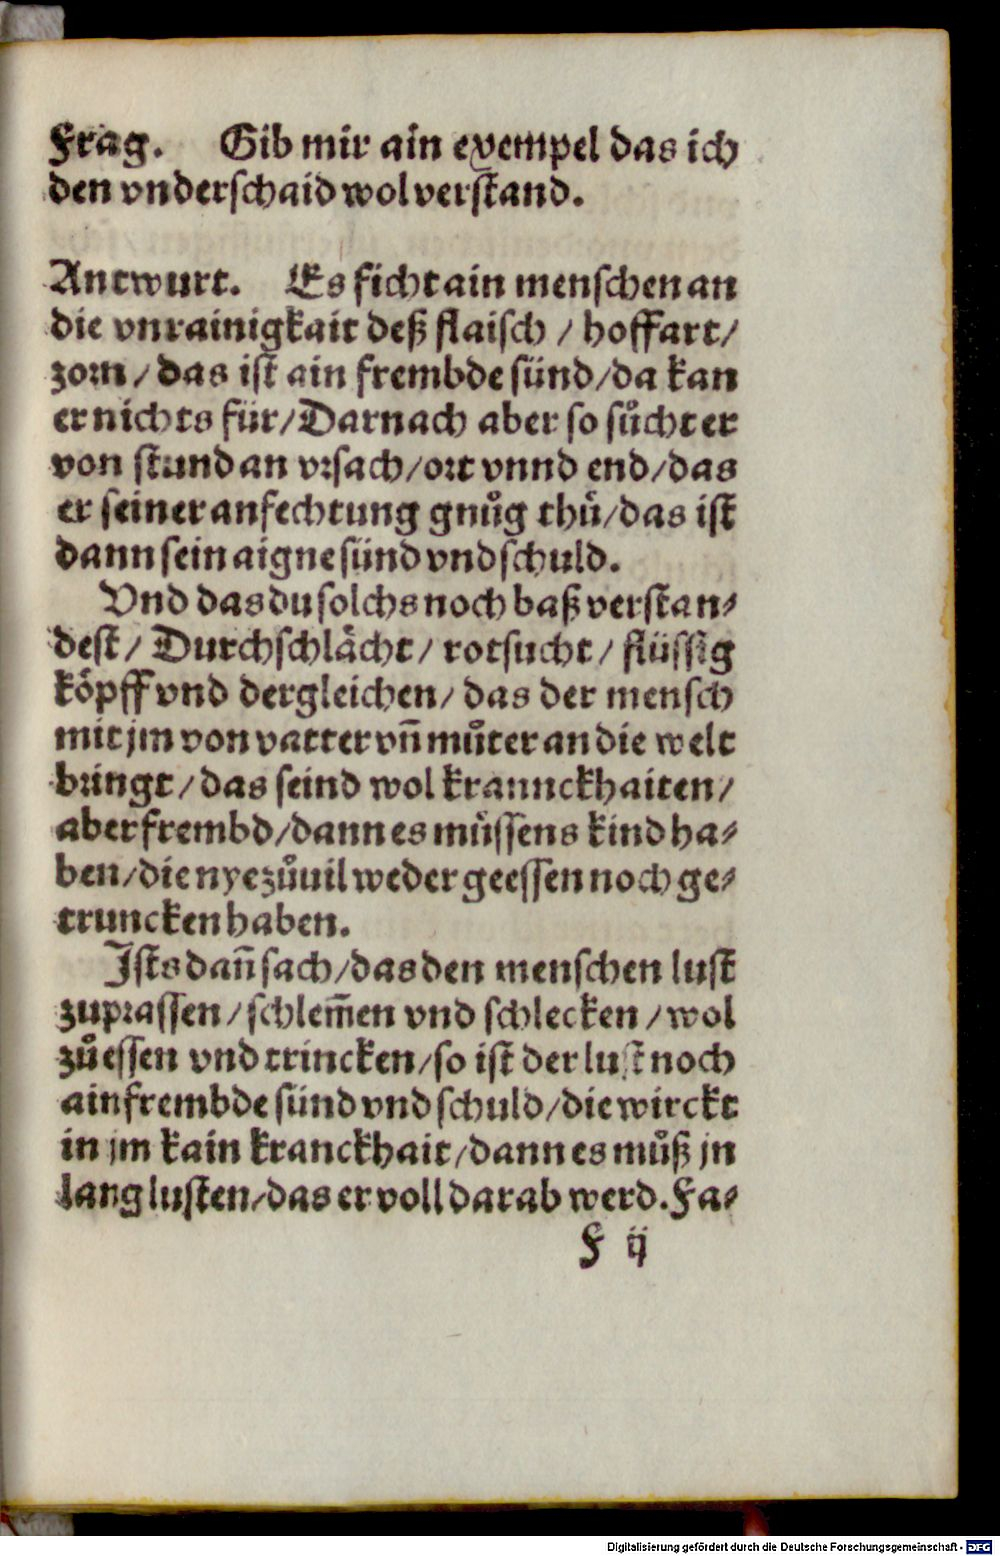 Frag. Gib mir ain exempel das ich
den vnderschaid wol verstand.
Antwurt. Es ficht ain menschen an
die vnrainigkait deß flaisch / hoffart /
zorn / das ist ain frembde sünd / da kan
er nichts für / Darnach aber so sůcht er
von stund an vrsach / ort vnnd end / das
er seiner anfechtung gnůg thů / das ist
dann sein aigne sünd vnd schuld.
Vnd das du solchs noch baß verstan-
dest / Durchschlächt / rotsucht / flüssig
köpff vnd dergleichen / das der mensch
mit jm von vatter vñ můter an die welt
bringt / das seind wol krannckhaiten /
aber frembd / dann es müssens kind ha-
ben / die nye zůuil weder geessen noch ge-
truncken haben.
Ists dañ sach / das den menschen lust
zuprassen / schlem̃en vnd schlecken / wol
zůessen vnd trincken / so ist der lust noch
ain frembde sünd vnd schuld / die wirckt
in jm kain kranckhait / dann es můß jn
lang lusten / das er voll darab werd. Fa-
F ij
Digitalisierung gefördert durch die Deutsche Forschungsgemeinschaft - DFG